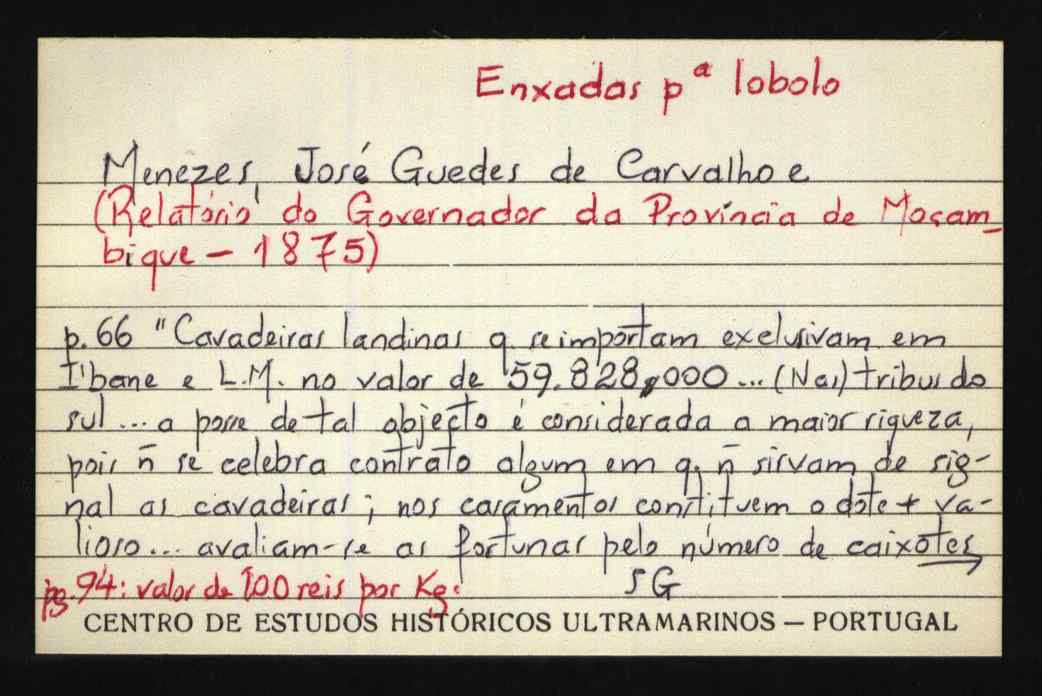 Enxadas pª lobolo
Menezes, José Guedes de Carvalho e
(Relatório do Governador da Província de Moçam_
bique - 1875)
p.66 "Cavadeiras landinas q se importam exclusivam em
I'bane e L.M. no valor de 59.828$000... (Nas) tribus do
sul... a posse de tal objecto é considerada a maior riqueza,
pois ñ se celebra contrato algum em q. ñ sirvam de sig-
nal as cavadeiras; nos casamentos constituem o dote + va-
lioso... avaliam-se as fortunas pelo número de caixotes
pg. 94: valor de 100 reis por Kg.
SG
CENTRO DE ESTUDOS HISTÓRICOS ULTRAMARINOS — PORTUGAL